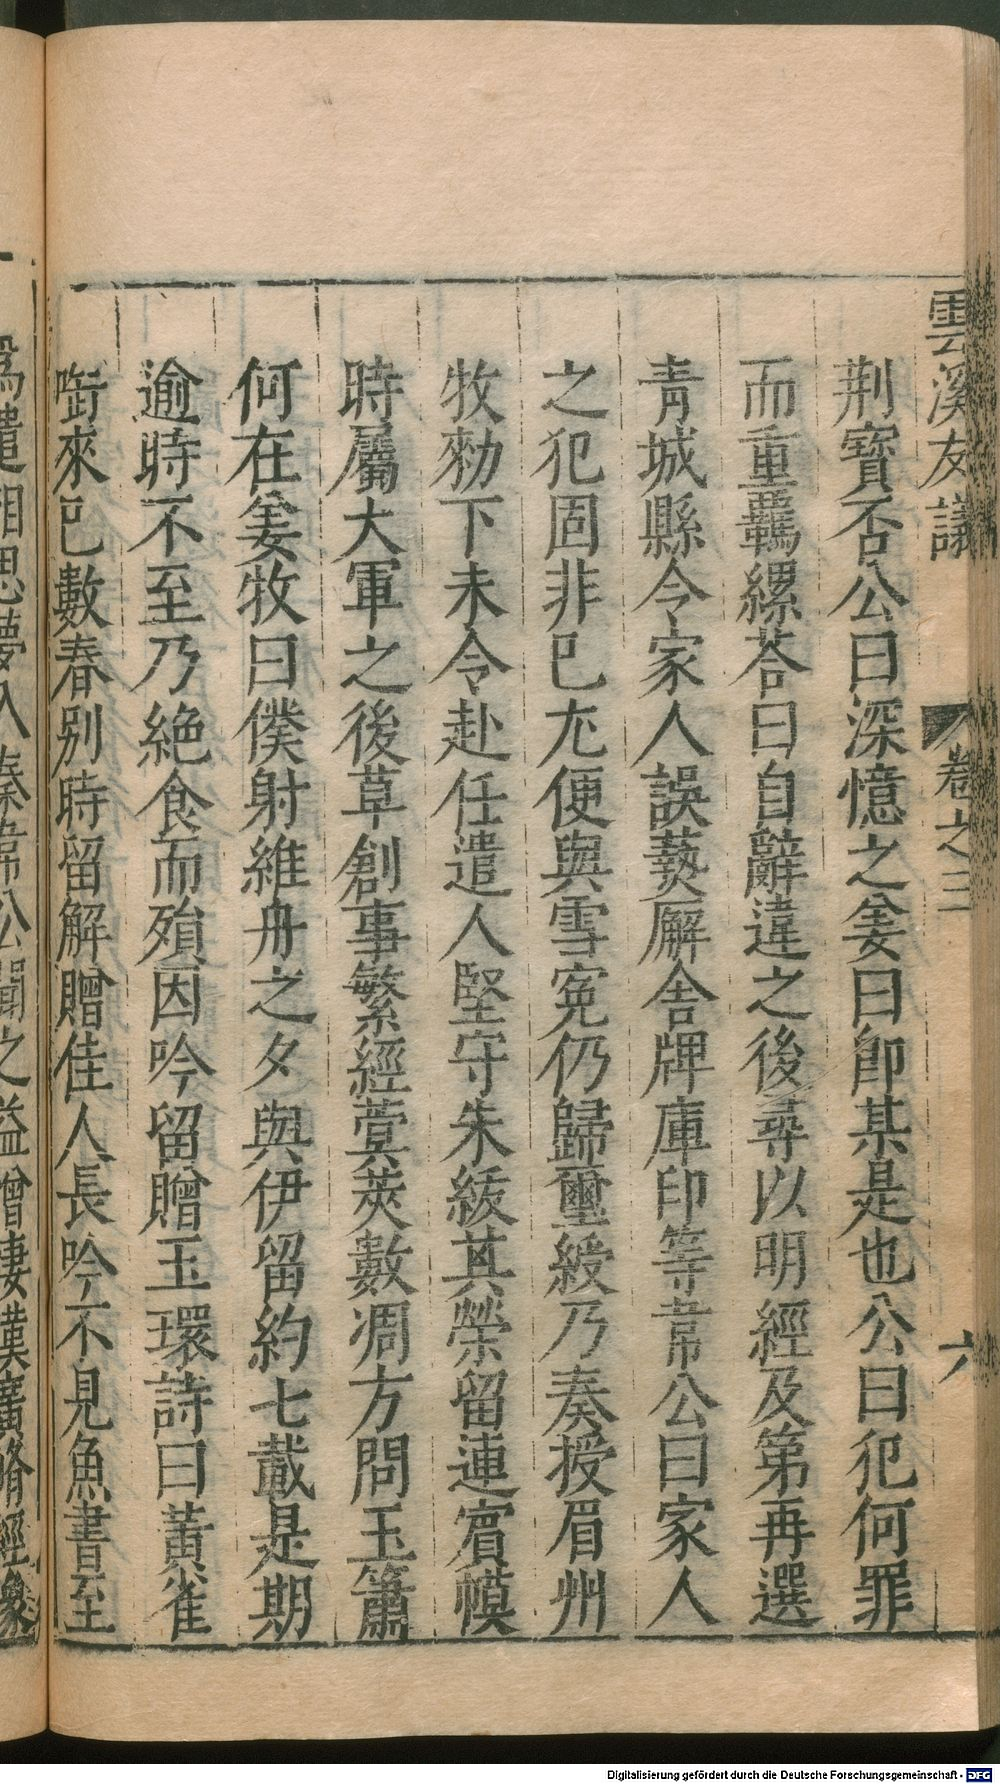 雲溪友議
卷之三
六
荆寶否公曰深憶之姜曰即某是也公曰犯何罪
而重羈縲荅曰自辭違之後尋以明經及第再選
青城縣令家人誤爇廨舍牌庫印等韋公曰家人
之犯固非巳尤便與雪寃仍歸璽綬乃奏授眉州
牧勑下未令赴任遣人堅守朱紱其榮留連賓幙
時屬大軍之後草創事繁經蓂莢數凋方問玉簫
何在姜牧曰僕射維舟之夕與伊留約七載是期
逾時不至乃絶食而殞因吟留贈玉環詩曰黃雀
啣來巳數春别時留解贈佳人長吟不見魚書至
爲遣相思夢入秦韋公聞之益增悽嘆廣脩經像
Digitalisierung gefördert durch die Deutsche Forschungsgemeinschaft - DFG